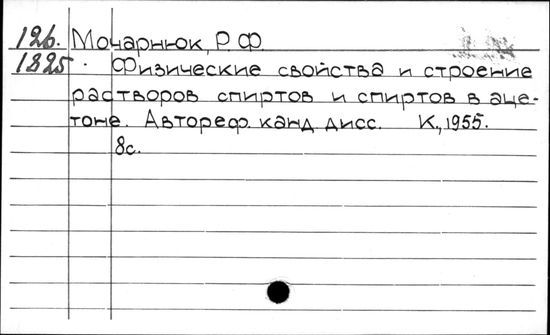 126. Мочарнюк, Р.Ф.
1825. Физические свойства и строение
растворов спиртов и спиртов в аце-
тоне. Автореф. канд дисс. К., 1955.
8с.